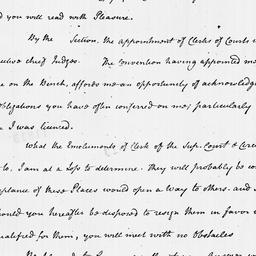 d you will read with Pleasure.
By the Section, the appointment of Clerks of Courts i
ective chief Judges. The Convention having appointed me
e on the Bench, affords me an opportunity of acknowledg
obligations you have often conferred on me; particularly
I was licenced.
What the Emoluments of Clerk of the Sup. Court &
be, I am at a Loss to determine. They will probably be
ptance of these Places would open a way to others. and
hould you hereafter be disposed to resign them in favor
ualified for them, you will meet with no obstacles